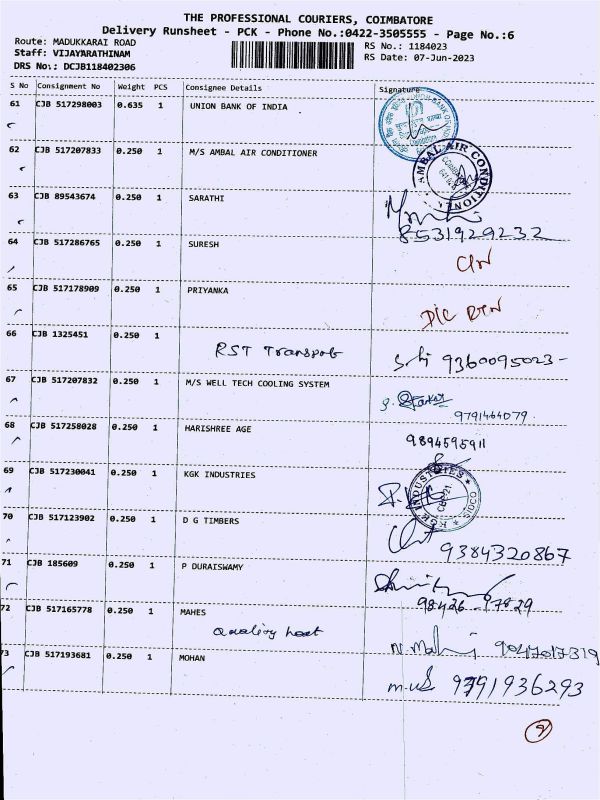 THE PROFESSIONAL COURIERS, COIMBATORE
Delivery Runsheet - PCK - Phone No.:0422-3505555 - Page No.:6
Route: MADUKKARAI ROAD
RS No.: 1184023
Staff: VIJAYARATHINAM
RS Date: 07-Jun-2023
DRS No.: DCJB118402306
S No Consignment No Weight PCS Consignee Details Signature
61 CJB 517298003 0.635 1 UNION BANK OF INDIA
62 CJB 517207833 0.250 1 M/S AMBAL AIR CONDITIONER
AMBAL AIR CONDITIONER
63 CJB 89543674 0.250 1 SARATHI
8531929232
64 CJB 517286765 0.250 1 SURESH
65 CJB 517178909 0.250 1 PRIYANKA
D/C RTN
66 CJB 1325451 0.250 1
RST Transport 9360095023-
67 CJB 517207832 0.250 1 M/S WELL TECH COOLING SYSTEM
9791464079
68 CJB 517258028 0.250 1 HARISHREE AGE
9894595911
69 CJB 517230041 0.250 1 KGK INDUSTRIES
KGK INDUSTRIES SIDCO
70 CJB 517123902 0.250 1 D G TIMBERS
9384320867
71 CJB 185609 0.250 1 P DURAISWAMY
72 CJB 517165778 0.250 1 MAHES
Quality
73 CJB 517193681 0.250 1 MOHAN
9791936293